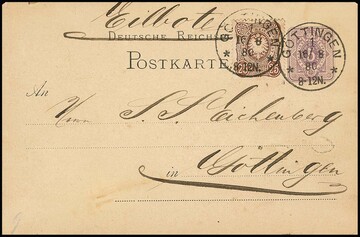 Eilbote
DEUTSCHE REICHS
POSTKARTE
GÖTTINGEN
8
80
8-12N.
GÖTTINGEN
1
18/8
80
8-12N.
An
Herrn S. S. Eichenberg
in
Göttingen